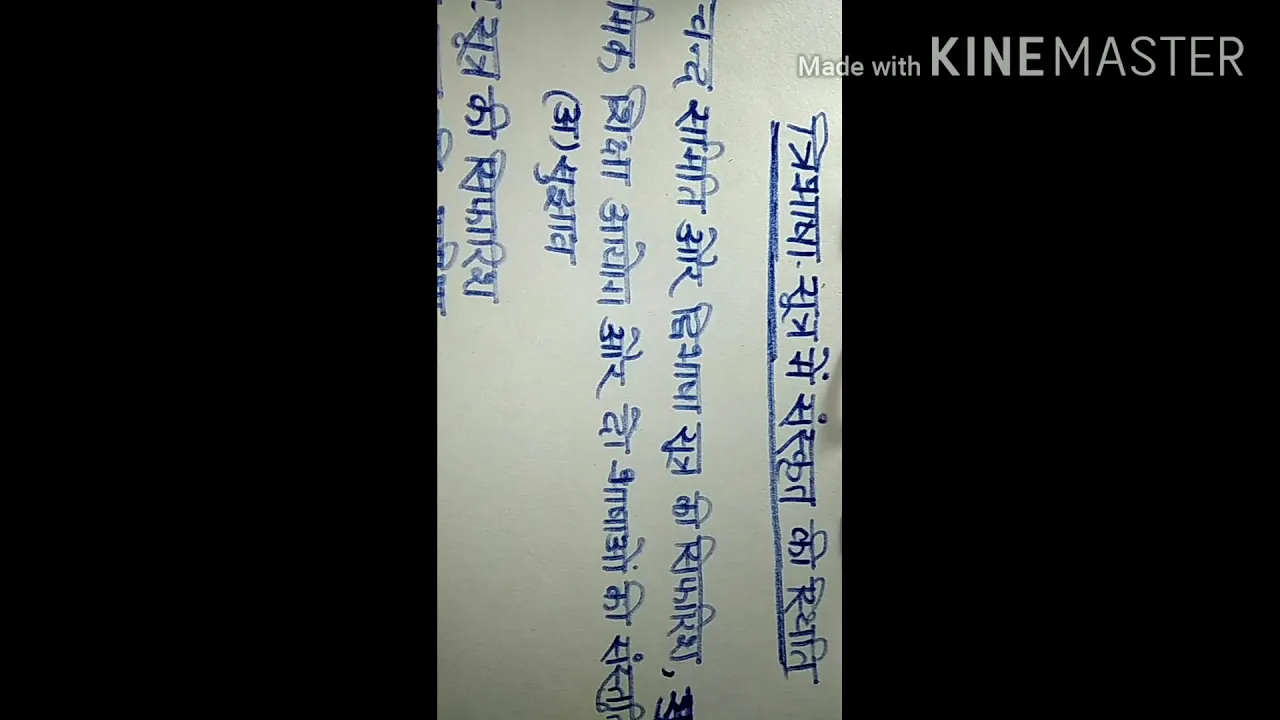 Made with KINEMASTER
त्रिभाषा-सूत्र में संस्कृत की स्थिति
चन्द समिति और द्विभाषा सूत्र की सिफारिश,
मिक शिक्षा आयोग और दो भाषाओं की संस्तुति
(अ) सुझाव
सूत्र की सिफारिश